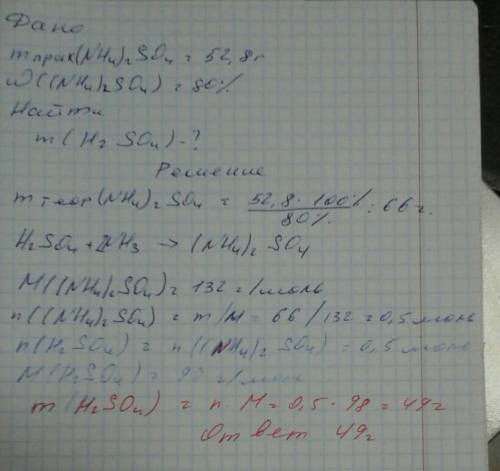 Дано
m прак(NH4)2SO4 = 52,8г
ω((NH4)2SO4) = 80%
Найти
m(H2SO4)-?
Решение
m теор(NH4)2SO4 = 52,8·100%/80% = 66г.
H2SO4+2NH3 → (NH4)2SO4
M((NH4)2SO4) = 132 г/моль
n((NH4)2SO4) = m/M = 66/132 = 0,5 моль
n(H2SO4) = n((NH4)2SO4) = 0,5 моль
M(H2SO4) = 98 г/моль
m(H2SO4) = n·M = 0,5·98 = 49г
Ответ 49г